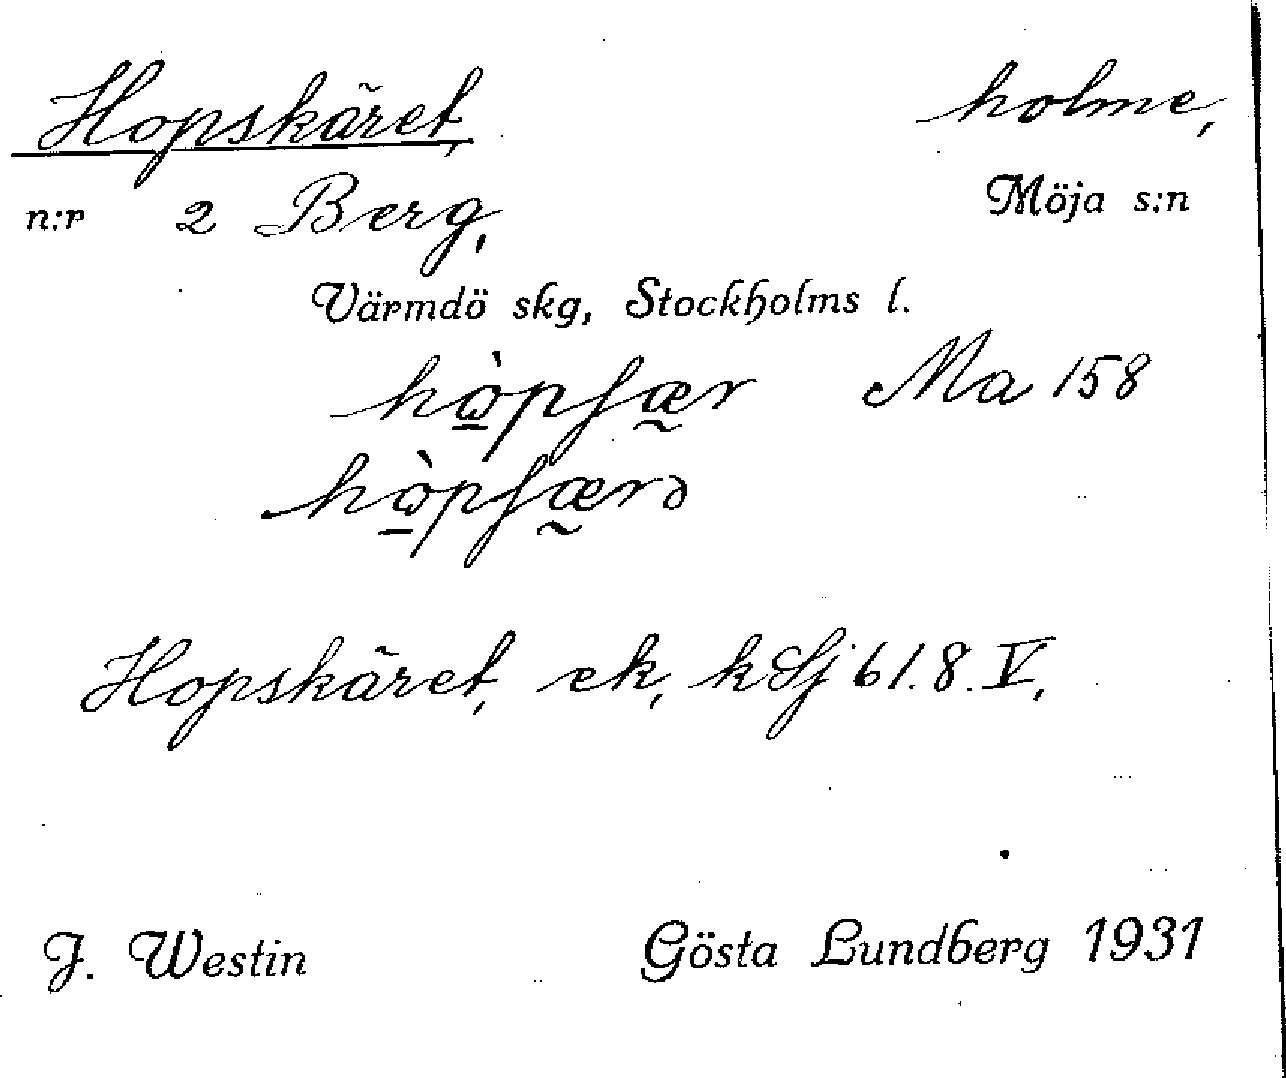 Hopskäret, holme,
n:r 2 Berg, Möja s:n
Värmdö skg, Stockholms l.
Ma 158
Hopskäret, ek, kSj 61.8.V,
J. Westin Gösta Lundberg 1931